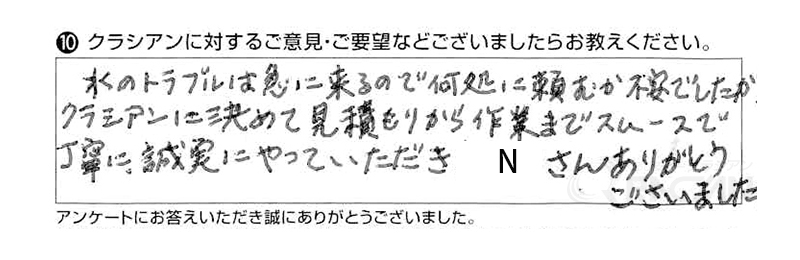 ⑩ クラシアンに対するご意見・ご要望などございましたらお教えください。
水のトラブルは急に来るので何処に頼むか不安でしたが
クラシアンに決めて見積もりから作業までスムースで
丁寧に、誠実にやっていただき N さんありがとう
ございました
アンケートにお答えいただき誠にありがとうございました。